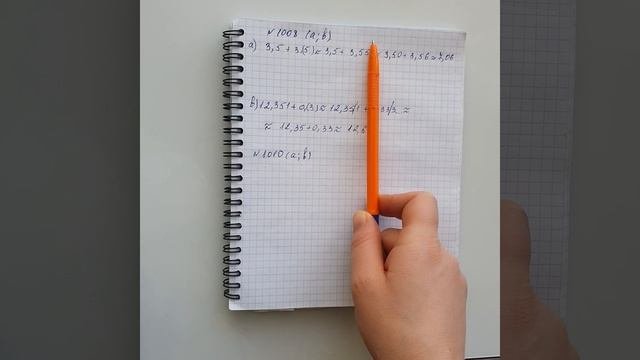 № 1008 (а; в)
а) 3,5 + 3,(5) ≈ 3,5 + 3,55 3,50 + 3,56 ≈ 7,06
в) 12,351 + 0,(3) ≈ 12,35/1 + 33/3 ≈
≈ 12,35 + 0,33 ≈ 12,
№ 1010 (а; в)